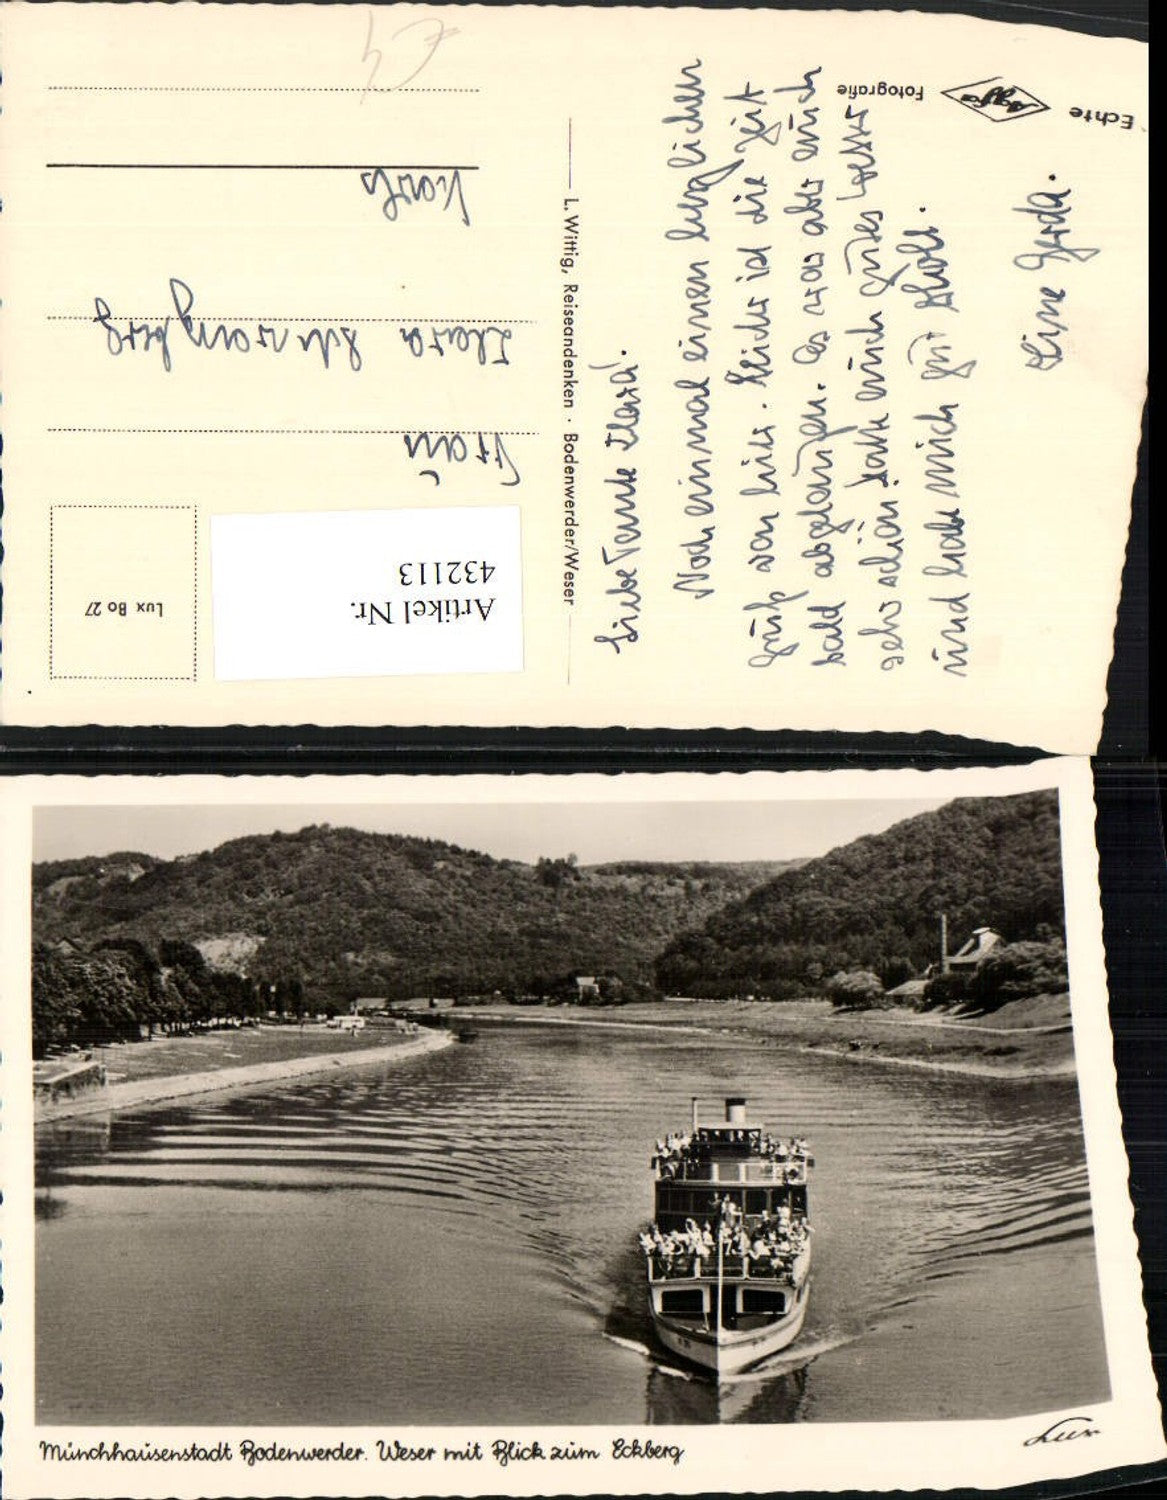 Echte Agfa Fotografie
Liebe Tante Klara!
Noch einmal einen herzlichen
Gruß von hier. Leider ist die Zeit
bald abgelaufen. Es war aber auch
sehr schön. Hatte auch gutes Wetter
und habe mich gut erholt.
Deine Gerda.
L. Wittig, Reiseandenken · Bodenwerder/Weser
Lux Bo 27
Artikel Nr.
432113
Frau
Klara
4€
Münchhausenstadt Bodenwerder. Weser mit Blick zum Eckberg
Lux